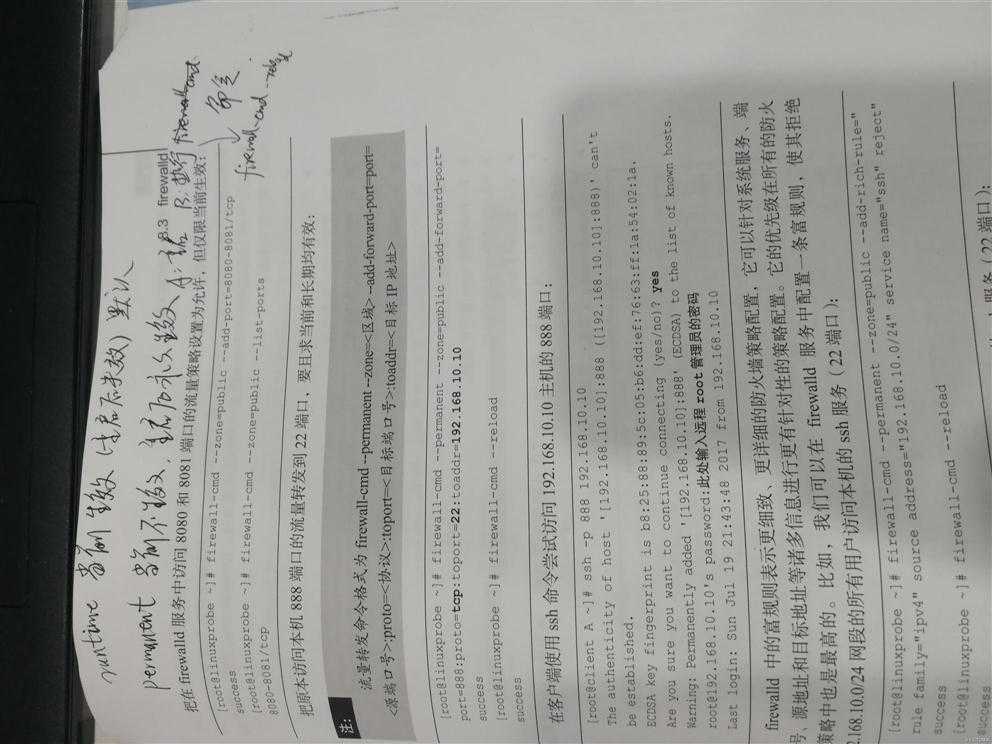 runtime 当前生效 (重启后失效) 默认
permanent 当前不生效, 重启后永久生效 A: 重启 B: 执行 firewall-cmd
命令
firewall-cmd --reload
8.3 firewalld
把在 firewalld 服务中访问 8080 和 8081 端口的流量策略设置为允许，但仅限当前生效：
[root@linuxprobe ~]# firewall-cmd --zone=public --add-port=8080-8081/tcp
success
[root@linuxprobe ~]# firewall-cmd --zone=public --list-ports
8080-8081/tcp
把原本访问本机 888 端口的流量转发到 22 端口，要且求当前和长期均有效：
注：
流量转发命令格式为 firewall-cmd --permanent --zone=<区域> --add-forward-port=port=
<源端口号>:proto=<协议>:toport=<目标端口号>:toaddr=<目标 IP 地址>
[root@linuxprobe ~]# firewall-cmd --permanent --zone=public --add-forward-port=
port=888:proto=tcp:toport=22:toaddr=192.168.10.10
success
[root@linuxprobe ~]# firewall-cmd --reload
success
在客户端使用 ssh 命令尝试访问 192.168.10.10 主机的 888 端口：
[root@client A ~]# ssh -p 888 192.168.10.10
The authenticity of host '[192.168.10.10]:888 ([192.168.10.10]:888)' can't
be established.
ECDSA key fingerprint is b8:25:88:89:5c:05:b6:dd:ef:76:63:ff:1a:54:02:1a.
Are you sure you want to continue connecting (yes/no)? yes
Warning: Permanently added '[192.168.10.10]:888' (ECDSA) to the list of known hosts.
root@192.168.10.10's password:此处输入远程 root 管理员的密码
Last login: Sun Jul 19 21:43:48 2017 from 192.168.10.10
firewalld 中的富规则表示更细致、更详细的防火墙策略配置，它可以针对系统服务、端
号、源地址和目标地址等诸多信息进行更有针对性的策略配置。它的优先级在所有的防火
策略中也是最高的。比如，我们可以在 firewalld 服务中配置一条富规则，使其拒绝
2.168.10.0/24 网段的所有用户访问本机的 ssh 服务（22 端口）：
[root@linuxprobe ~]# firewall-cmd --permanent --zone=public --add-rich-rule="
rule family="ipv4" source address="192.168.10.0/24" service name="ssh" reject"
success
[root@linuxprobe ~]# firewall-cmd --reload
success
服务（22 端口）：